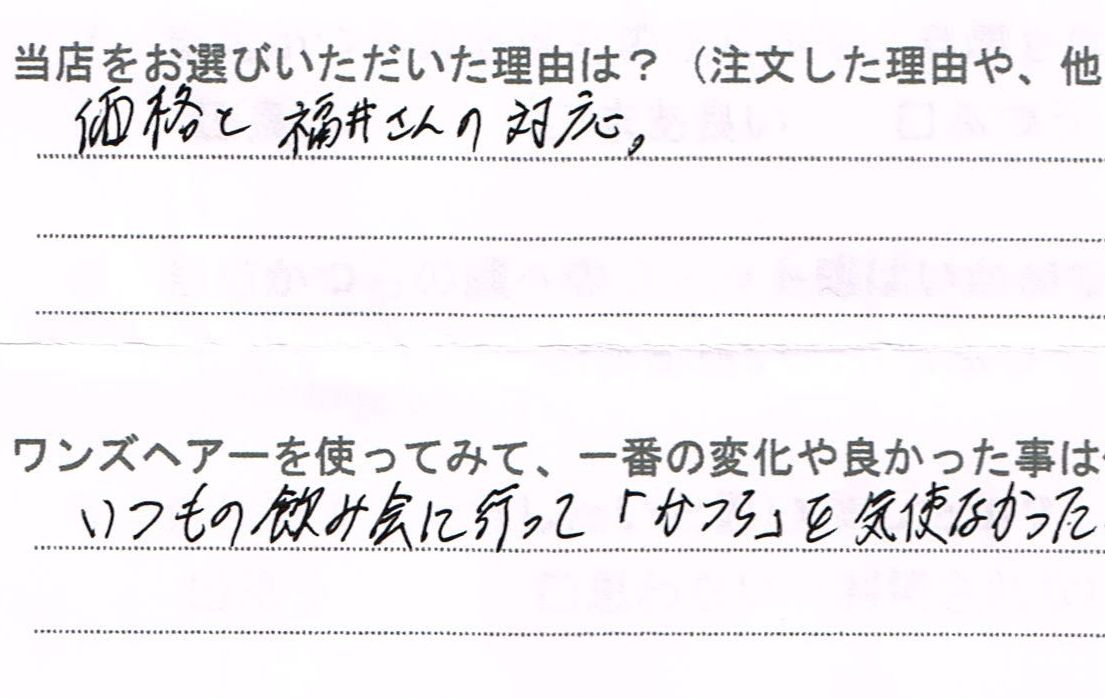 当店をお選びいただいた理由は？（注文した理由や、他
価格と福井さんの対応。
ワンズヘアーを使ってみて、一番の変化や良かった事は
いつもの飲み会に行って「かつら」を気使なかった